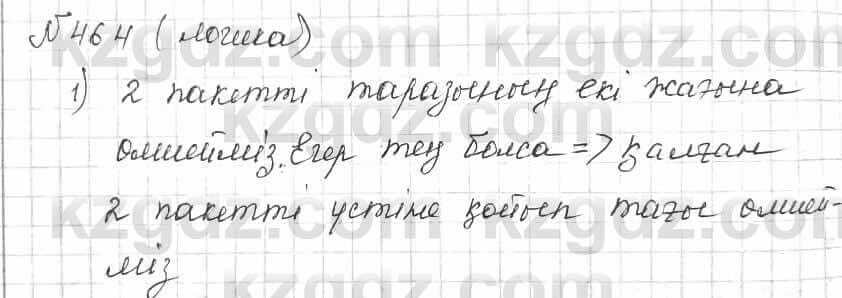 №464 (логика)
1) 2 пакетті таразының екі жағына
өлшейміз. Егер тең болса => қалған
2 пакетті үстіне қойып тағы өлшей-
міз
kzgdz.com